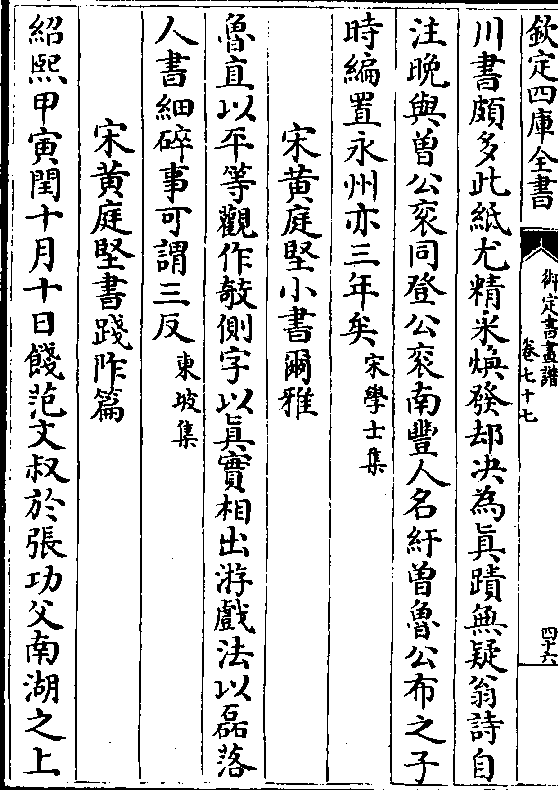 欽定四庫全書
御定書畫譜
卷七十七
四十六
川書頗多此紙尤精采煥發却決為眞蹟無疑翁詩自
注晚與曾公衮同登公衮南豐人名紆曽魯公布之子
時編置永州亦三年矣宋學士集
宋黄庭堅小書爾雅
魯直以平等觀作欹側字以眞實相出游戲法以磊落
人書細碎事可謂三反東坡集
宋黄庭堅書踐阼篇
紹熙甲寅閏十月十日餞范文叔於張功父南湖之上